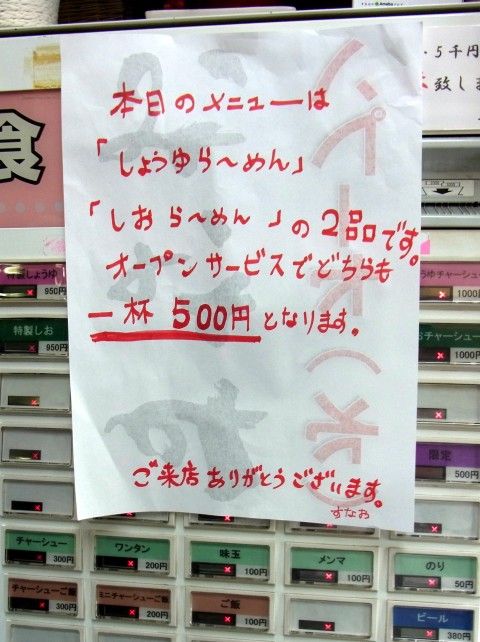 ・5千円
致しま
本日のメニューは
「しょうゆら〜めん」
「しおら〜めん」の2品です。
オープンサービスでどちらも
一杯 500円となります。
ご来店ありがとうございます。
すなお
特製しょうゆ
950円
ゆチャーシュー
1000円
特製しお
950円
おチャーシュー
1000円
限定
500円
チャーシュー
300円
ワンタン
200円
味玉
100円
メンマ
100円
のり
50円
チャーシューご飯
300円
ミニチャーシューご飯
200円
ご飯
100円
ビール
380円